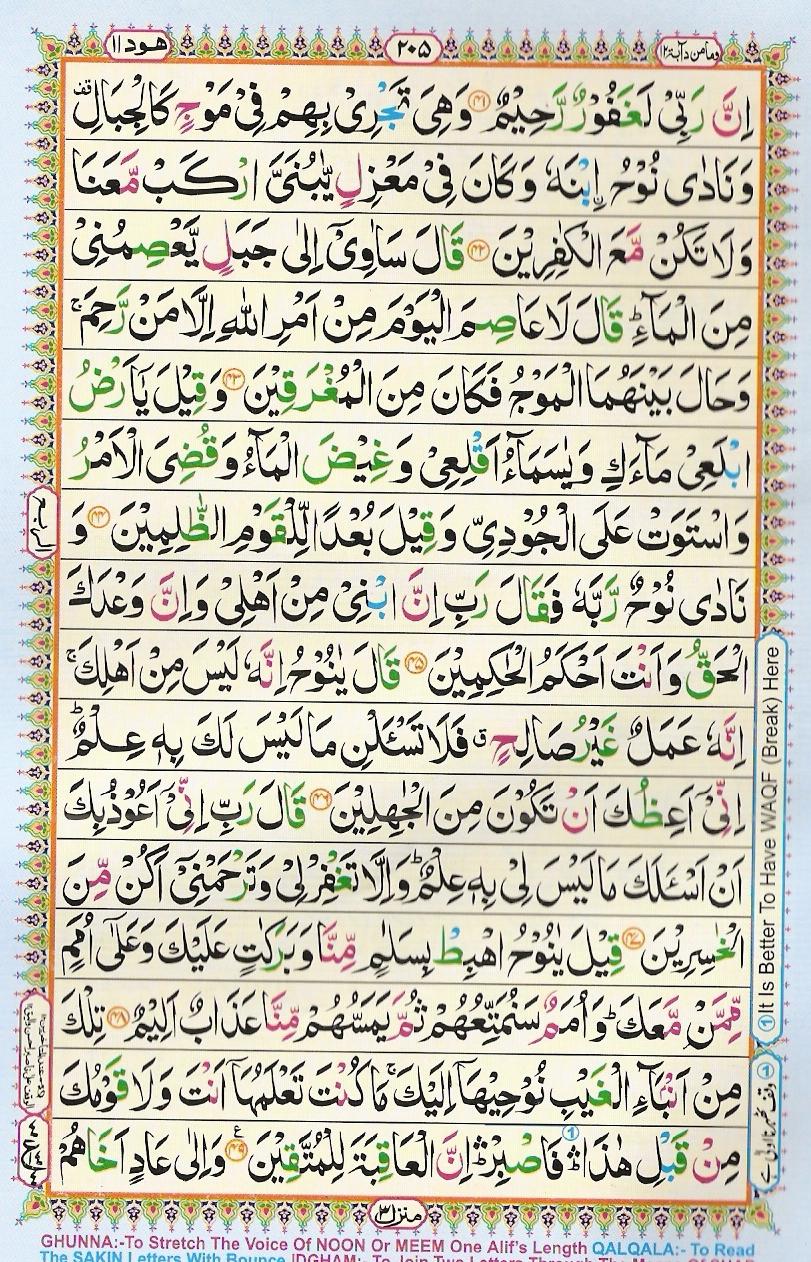 وما من دآبۃ ١٢
٢٠٥
هود ١١
اِنَّ رَبِّىْ لَغَفُوْرٌ رَّحِيْمٌ ﴿٤١﴾ وَهِىَ تَجْرِىْ بِهِمْ فِىْ مَوْجٍ كَالْجِبَالِ قف
وَنَادٰى نُوْحُ ۨابْنَهٗ وَكَانَ فِىْ مَعْزِلٍ يّٰبُنَىَّ ارْكَبْ مَّعَنَا
وَلَا تَكُنْ مَّعَ الْكٰفِرِيْنَ ﴿٤٢﴾ قَالَ سَاٰوِىْۤ اِلٰى جَبَلٍ يَّعْصِمُنِىْ
مِنَ الْمَآءِ ؕ قَالَ لَا عَاصِمَ الْيَوْمَ مِنْ اَمْرِ اللّٰهِ اِلَّا مَنْ رَّحِمَ ۚ
وَحَالَ بَيْنَهُمَا الْمَوْجُ فَكَانَ مِنَ الْمُغْرَقِيْنَ ﴿٤٣﴾ وَقِيْلَ يٰۤاَرْضُ
ابْلَعِىْ مَآءَكِ وَيٰسَمَآءُ اَقْلِعِىْ وَغِيْضَ الْمَآءُ وَقُضِىَ الْاَمْرُ
وَاسْتَوَتْ عَلَى الْجُوْدِىِّ وَقِيْلَ بُعْدًا لِّلْقَوْمِ الظّٰلِمِيْنَ ﴿٤٤﴾ وَ
نَادٰى نُوْحٌ رَّبَّهٗ فَقَالَ رَبِّ اِنَّ ابْنِىْ مِنْ اَهْلِىْ وَاِنَّ وَعْدَكَ
الْحَقُّ وَاَنْتَ اَحْكَمُ الْحٰكِمِيْنَ ﴿٤٥﴾ قَالَ يٰنُوْحُ اِنَّهٗ لَيْسَ مِنْ اَهْلِكَ ۚ
اِنَّهٗ عَمَلٌ غَيْرُ صَالِحٍ ۗ فَلَا تَسْـَٔلْنِ مَا لَيْسَ لَكَ بِهٖ عِلْمٌ ؕ
اِنِّىْۤ اَعِظُكَ اَنْ تَكُوْنَ مِنَ الْجٰهِلِيْنَ ﴿٤٦﴾ قَالَ رَبِّ اِنِّىْۤ اَعُوْذُ بِكَ
اَنْ اَسْـَٔلَكَ مَا لَيْسَ لِىْ بِهٖ عِلْمٌ ؕ وَاِلَّا تَغْفِرْ لِىْ وَتَرْحَمْنِىْۤ اَكُنْ مِّنَ
الْخٰسِرِيْنَ ﴿٤٧﴾ قِيْلَ يٰنُوْحُ اهْبِطْ بِسَلٰمٍ مِّنَّا وَبَرَكٰتٍ عَلَيْكَ وَعَلٰٓى اُمَمٍ
مِّمَّنْ مَّعَكَ ؕ وَاُمَمٌ سَنُمَتِّعُهُمْ ثُمَّ يَمَسُّهُمْ مِّنَّا عَذَابٌ اَلِيْمٌ ﴿٤٨﴾ تِلْكَ
مِنْ اَنْۢبَآءِ الْغَيْبِ نُوْحِيْهَاۤ اِلَيْكَ ۚ مَا كُنْتَ تَعْلَمُهَاۤ اَنْتَ وَلَا قَوْمُكَ
مِنْ قَبْلِ هٰذَا ۛؕ فَاصْبِرْ ۛؕ اِنَّ الْعَاقِبَةَ لِلْمُتَّقِيْنَ ﴿٤٩﴾ وَاِلٰى عَادٍ اَخَاهُمْ
الربع
① It Is Better To Have WAQF (Break) Here
منزل ٣
GHUNNA:-To Stretch The Voice Of NOON Or MEEM One Alif's Length QALQALA:- To Read
The SAKIN Letters With Bounce IDGHAM:- To Join Two Letters Through The